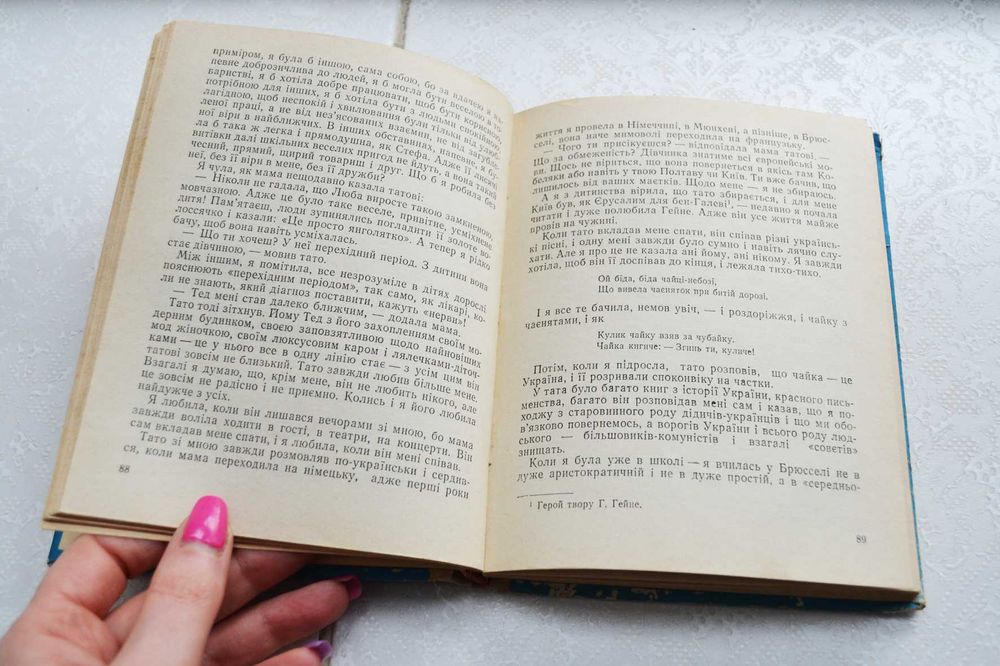 приміром, я була б іншою, сама собою, бо за вдачею я на-
певне доброзичлива до людей, я б могла бути веселою в то-
баристві, я б хотіла добре працювати, щоб бути корисною,
потрібною для інших, я б хотіла бути з людьми спокійною,
лагідною, щоб неспокій і хвилювання були тільки від улюб-
леної праці, а не від нез'ясованих взаємин, не від загубле-
ної віри в найближчих. В інших обставинах, напевне, я бу-
ла б така ж легка і прямодушна, як Стефа. Адже у неї
витівки далі шкільних веселих пригод не йдуть, а вона такий
чесний, прямий, щирий товариш і друг. Що б я робила без
неї, без її віри в мене, без її дружби?
Я чула, як мама нещодавно казала татові:
— Ніколи не гадала, що Люба виросте такою замкненою,
мовчазною. Адже це було таке веселе, привітне, усміхнене
дитя! Пам'ятаєш, люди зупинялись погладити її золоте во-
лоссячко і казали: «Це просто янголятко». А тепер я рідко
бачу, щоб вона навіть усміхалась.
— Що ти хочеш? У неї перехідний період. З дитини вона
стає дівчиною, — мовив тато.
Між іншим, я помітила, все незрозуміле в дітях дорослі
пояснюють «перехідним періодом», так само, як лікарі, ко-
ли не знають, який діагноз поставити, кажуть «нерви»!
— Тед мені став далеко ближчим, — додала мама.
Тато тоді зітхнув. Йому Тед з його захопленням своїм мо-
дерним будинком, своєю заповзятливістю щодо найновіших
мод жіночкою, своїм люксусовим каром і лялечками-діточ-
ками — це у нього все в одну лінію стає — з усім цим він
татові зовсім не близький. Тато завжди любив більше мене.
Взагалі я думаю, що, крім мене, він не любить нікого, але
це зовсім не радісно і не приємно. Колись і я його любила
найдужче з усіх.
Я любила, коли він лишався вечорами зі мною, бо мама
завжди воліла ходити в гості, в театри, на концерти. Він
сам вкладав мене спати, і я любила, коли він мені співав.
Тато зі мною завжди розмовляв по-українськи і сердив-
ся, коли мама переходила на німецьку, адже перші роки
88
життя я провела в Німеччині, в Мюнхені, а пізніше, в Брюс-
селі, вона наче мимоволі переходила на французьку.
— Чого ти присікуєшся? — відповідала мама татові. —
Що за обмеженість? Дівчинка знатиме всі європейські мо-
ви. Щось не віриться, що вона повернеться в якісь там Ко-
беляки або навіть у твою Полтаву чи Київ. Ти вже бачив, що
лишилось від ваших маєтків. Щодо мене — я не збираюсь.
А я з дитинства вірила, що тато збирається, і для мене
Київ був, як Єрусалим для бен-Галеві¹, — недавно я почала
читати і дуже полюбила Гейне. Адже він усе життя майже
провів на чужині.
Коли тато вкладав мене спати, він співав різні українсь-
кі пісні, і одну мені завжди було сумно і навіть лячно слу-
хати. Але я про це не казала ані йому, ані нікому. Я завжди
хотіла, щоб він її доспівав до кінця, і лежала тихо-тихо.
Ой біда, біда чайці-небозі,
Що вивела чаєняток при битій дорозі.
І я все те бачила, немов увіч, — і роздоріжжя, і чайку з
чаєнятами, і як
Кулик чайку взяв за чубайку.
Чайка кигиче: — Згинь ти, куличе!
Потім, коли я підросла, тато розповів, що чайка — це
Україна, і її розривали споконвіку на частки.
У тата було багато книг з історії України, красного пись-
менства, багато він розповідав мені сам і казав, що я по-
ходжу з старовинного роду дідичів-українців і що ми обо-
в'язково повернемось, а ворогів України і всього роду люд-
ського — більшовиків-комуністів і взагалі «совєтів»
знищать.
Коли я була уже в школі — я вчилась у Брюсселі не в
дуже аристократичній і не в дуже простій, а в «середньо-
¹ Герой твору Г. Гейне.
89